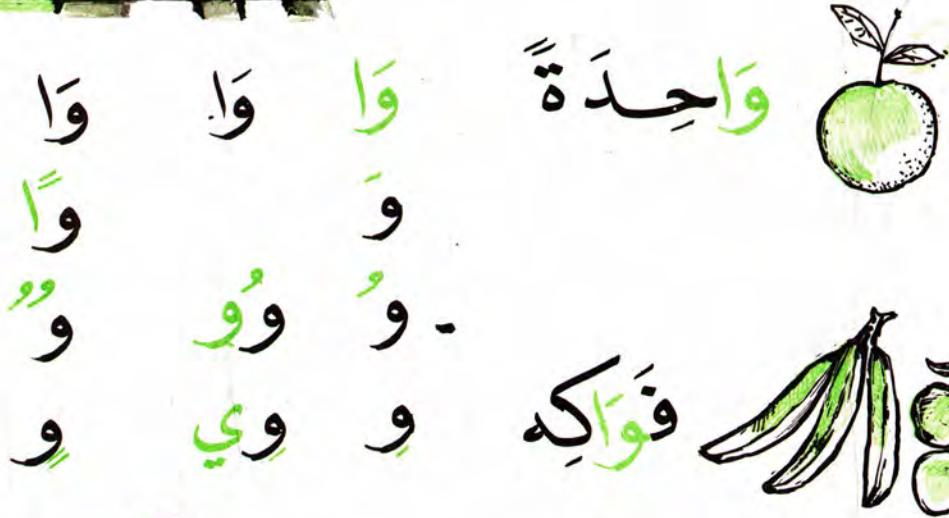 وَاحِدَةً وَا وَا وَا
وَ وًا
وُ وُو وٌ
فَوَاكِه وِ وِي وٍ